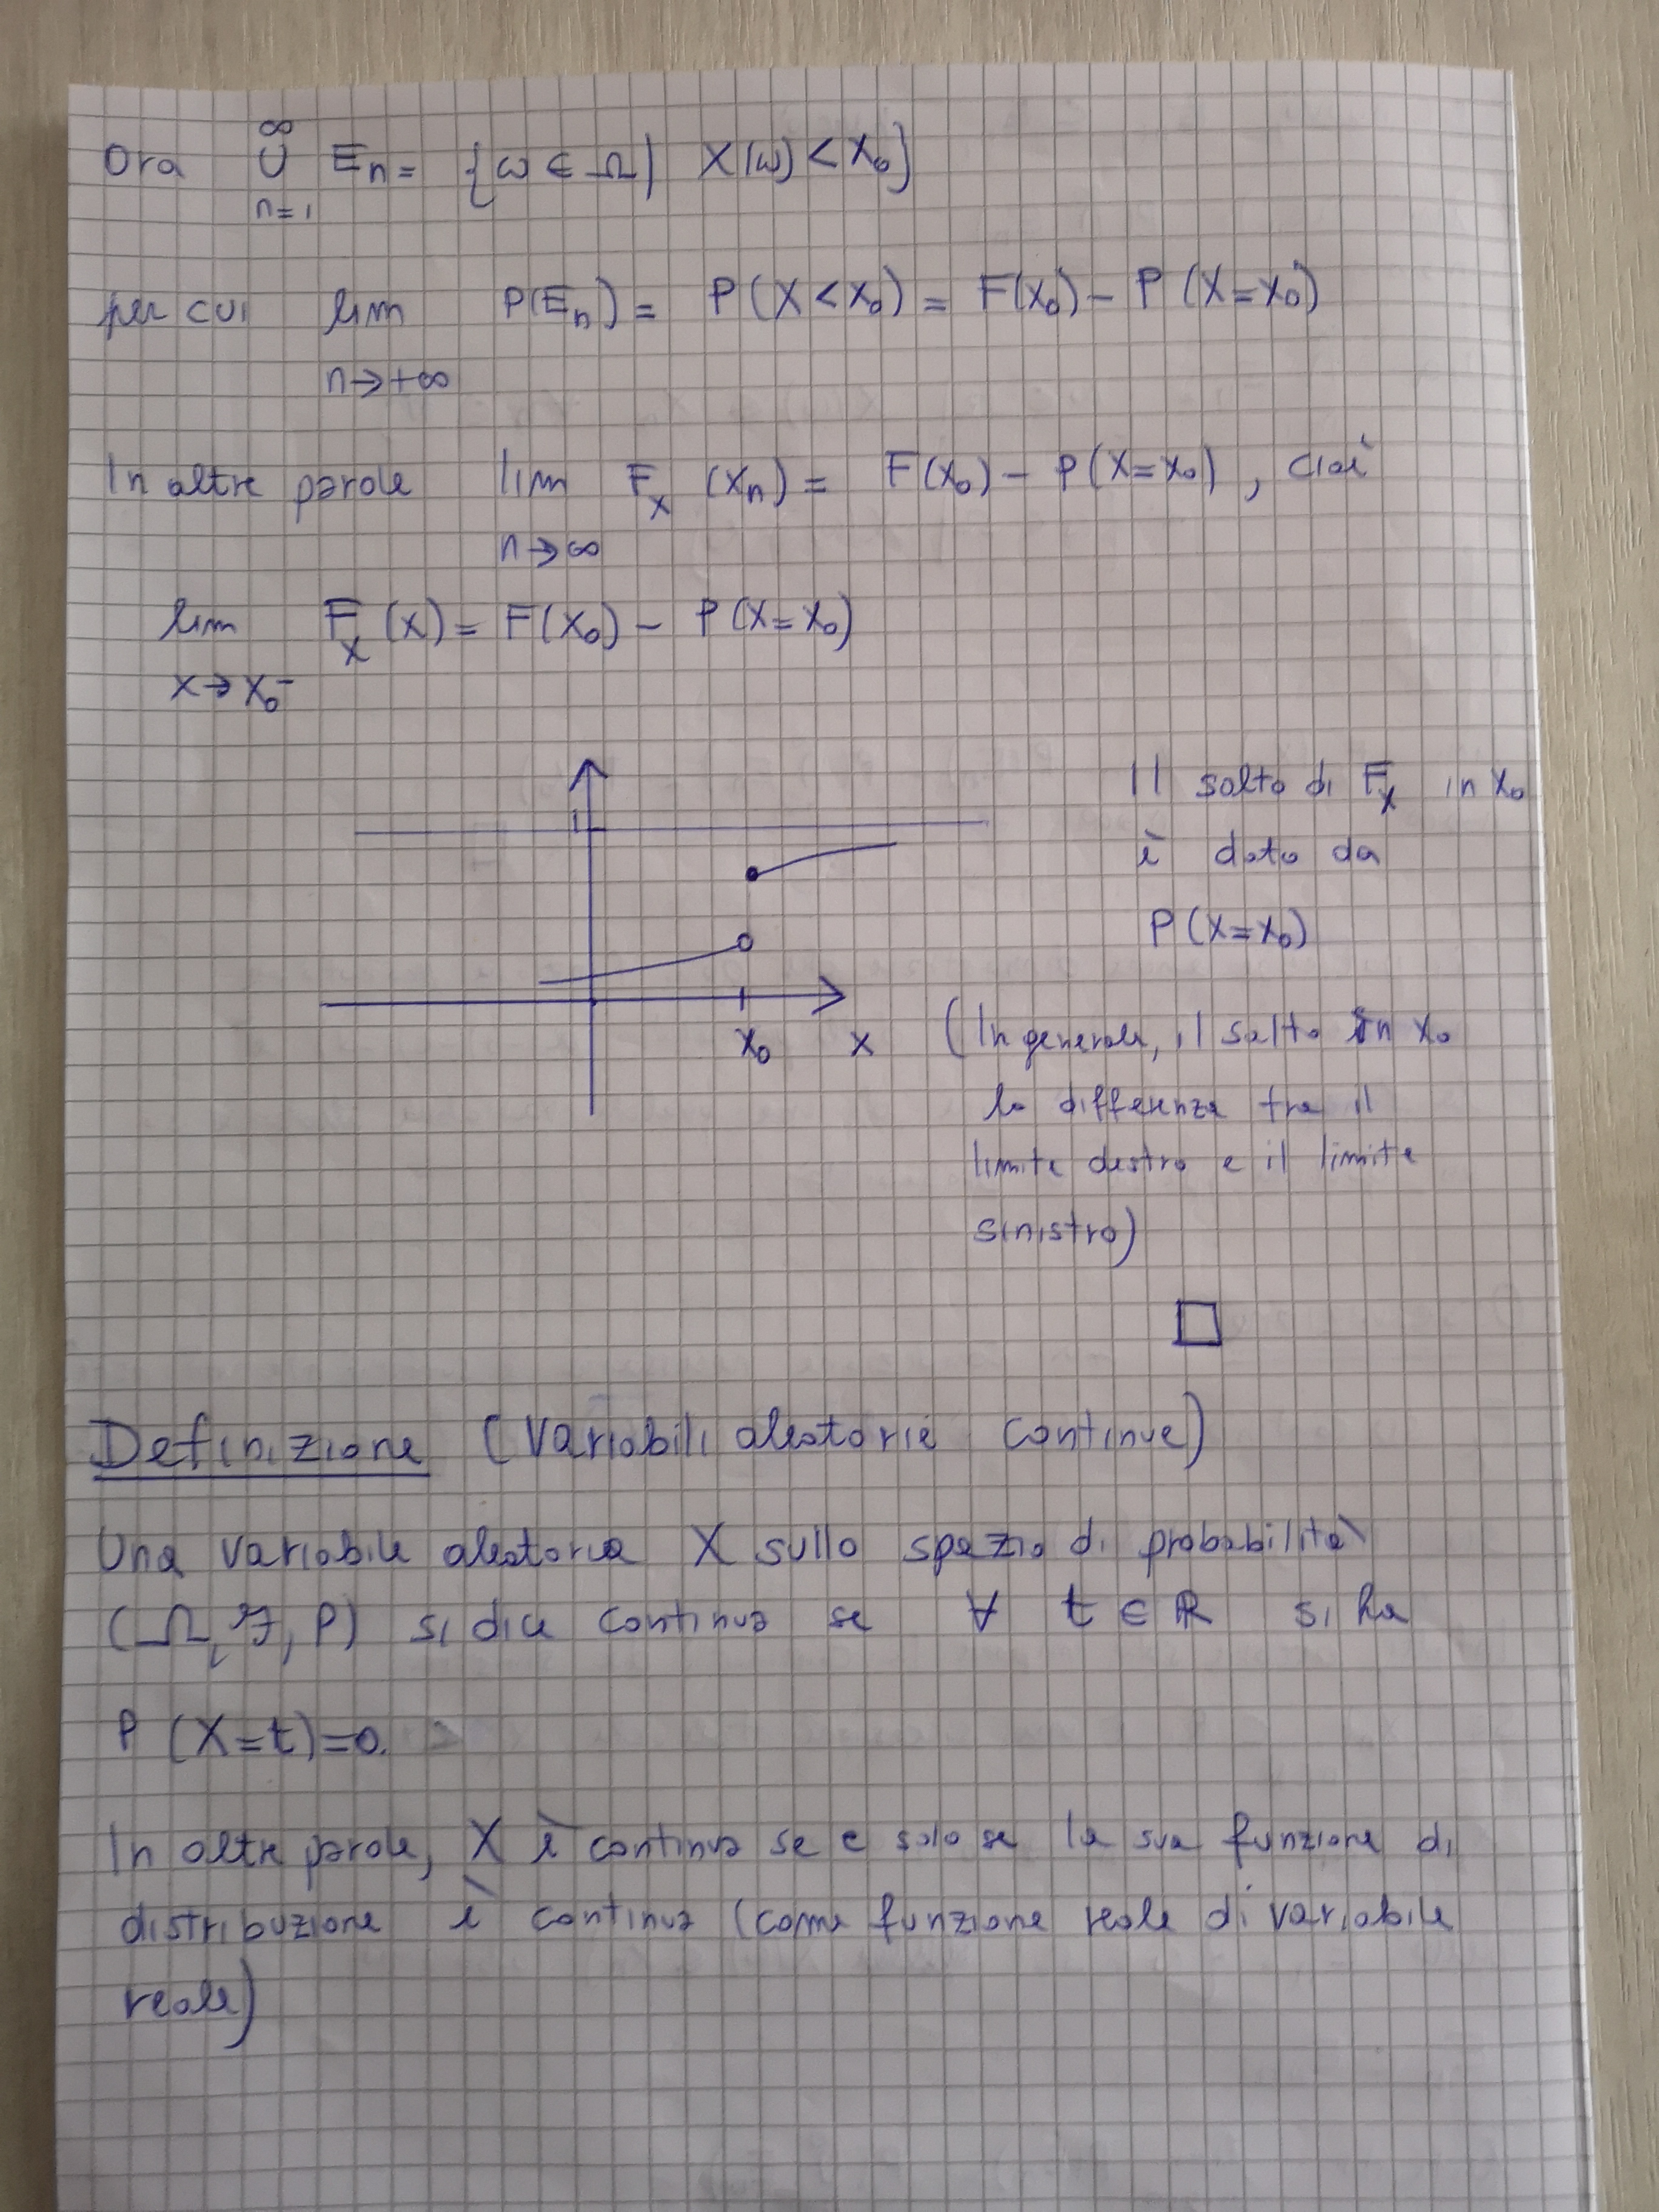 Ora ∞ ∪ n=1 En = {ω ∈ Ω | X(ω) < x₀}
per cui lim n→+∞ P(En) = P(X < x₀) = F(x₀) − P(X=x₀)
In altre parole lim n→∞ F_X (xn) = F(x₀) − P(X=x₀), cioè
lim x→x₀⁻ F_X (x) = F(x₀) − P(X=x₀)
1
x₀ x
Il salto di F_X in x₀
è dato da
P(X=x₀)
(In generale, il salto in x₀
la differenza tra il
limite destro e il limite
sinistro)
□
Definizione (Variabili aleatorie continue)
Una variabile aleatoria X sullo spazio di probabilità
(Ω, ℱ, P) si dice continua se ∀ t ∈ ℝ si ha
P (X=t)=0.
In altre parole, X è continua se e solo se la sua funzione di
distribuzione è continua (come funzione reale di variabile
reale)